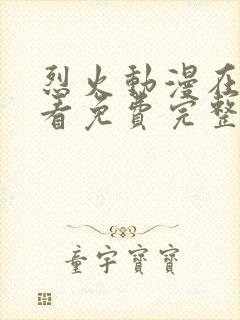 烈火動漫在
看免費完整
童宇寶寶